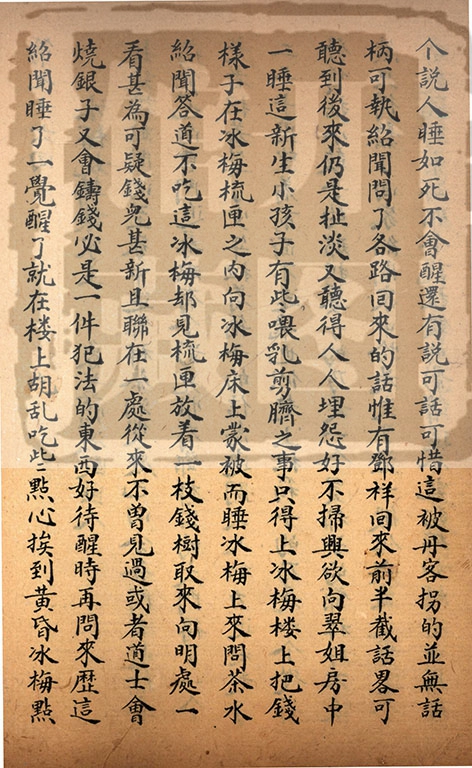 个說人睡如死不會醒還有說可話可惜這被丹客拐的並無話
柄可執紹聞問了各路回來的話惟有鄧祥回來前半截話畧可
聽到後來仍是扯淡又聽得人人埋怨好不掃興欲向翠姐房中
一睡這新生小孩子有些喂乳剪臍之事只得上冰梅楼上把錢
樣子在冰梅梳匣之内向冰梅床上蒙被而睡冰梅上來問茶水
紹聞答道不吃這冰梅却見梳匣放着一枝錢樹取來向明處一
看甚為可疑錢兒甚新且聯在一處從來不曽見過或者道士會
燒銀子又會鑄錢必是一件犯法的東西好待醒時再問來歷這
紹聞睡了一覺醒了就在楼上胡乱吃些點心挨到黄昏冰梅點